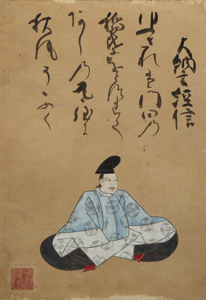 大納言經信
夕されは門田の
稲葉をとつれて
あしの丸屋に
秋風そふく